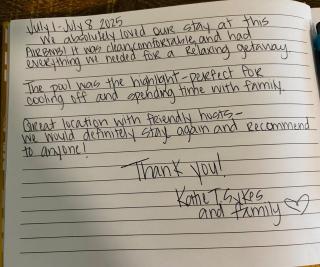 July 1 - July 8 2025
We absolutely loved our stay at this
AirBNB! It was clean, comfortable, and had
everything we needed for a relaxing getaway.
The pool was the highlight - perfect for
cooling off and spending time with family.
Great location with friendly hosts -
we would definitely stay again and recommend
to anyone!
Thank you!
Katie T. Sykes
and family ♡